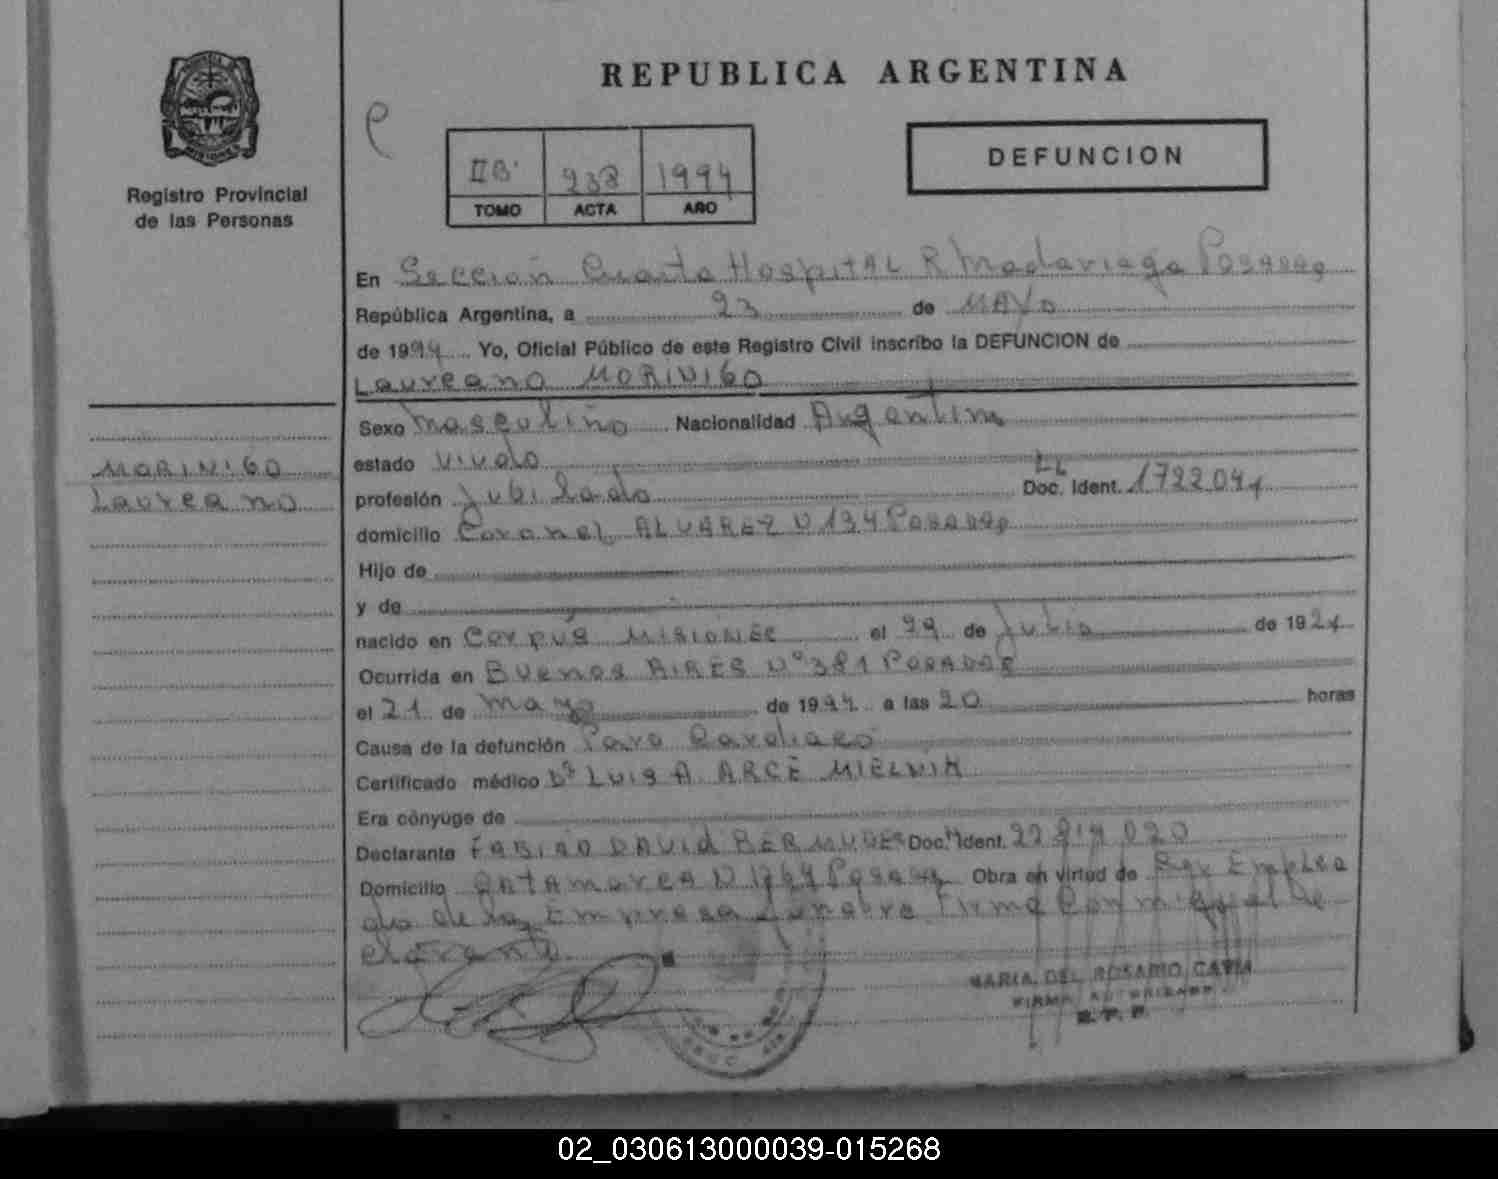 REPUBLICA ARGENTINA
MISIONES
Registro Provincial
de las Personas
IIB 238 1994
TOMO ACTA AÑO
DEFUNCION
En Sección Cuarta Hospital R Madariaga Posadas
República Argentina, a 23 de MAYO
de 1994 Yo, Oficial Público de este Registro Civil inscribo la DEFUNCION de
Laureano MORINIGO
Sexo Masculino Nacionalidad Argentina
MORINIGO
Laureano
estado viudo
profesión Jubilado LE Doc. Ident. 1722044
domicilio Coronel ALVAREZ N 134 Posadas
Hijo de
y de
nacido en Corpus MISIONES el 29 de Julio de 1924
Ocurrida en Buenos AIRES N° 381 POSADAS
el 21 de Mayo de 1994 a las 20 horas
Causa de la defunción Paro Cardiaco
Certificado médico Dr LUIS A. ARCE MIELNIK
Era cónyuge de
Declarante FABIAO DAVID BERMUDES Doc. Ident.
Domicilio CATAMARCA N Posadas Obra en virtud de Ser Emplea
do de la Empresa Funebre Firma Conmigo el De
clarante
MARIA DEL ROSARIO
FIRMA AUTORIZADA
R. P. P.
02_030613000039-015268